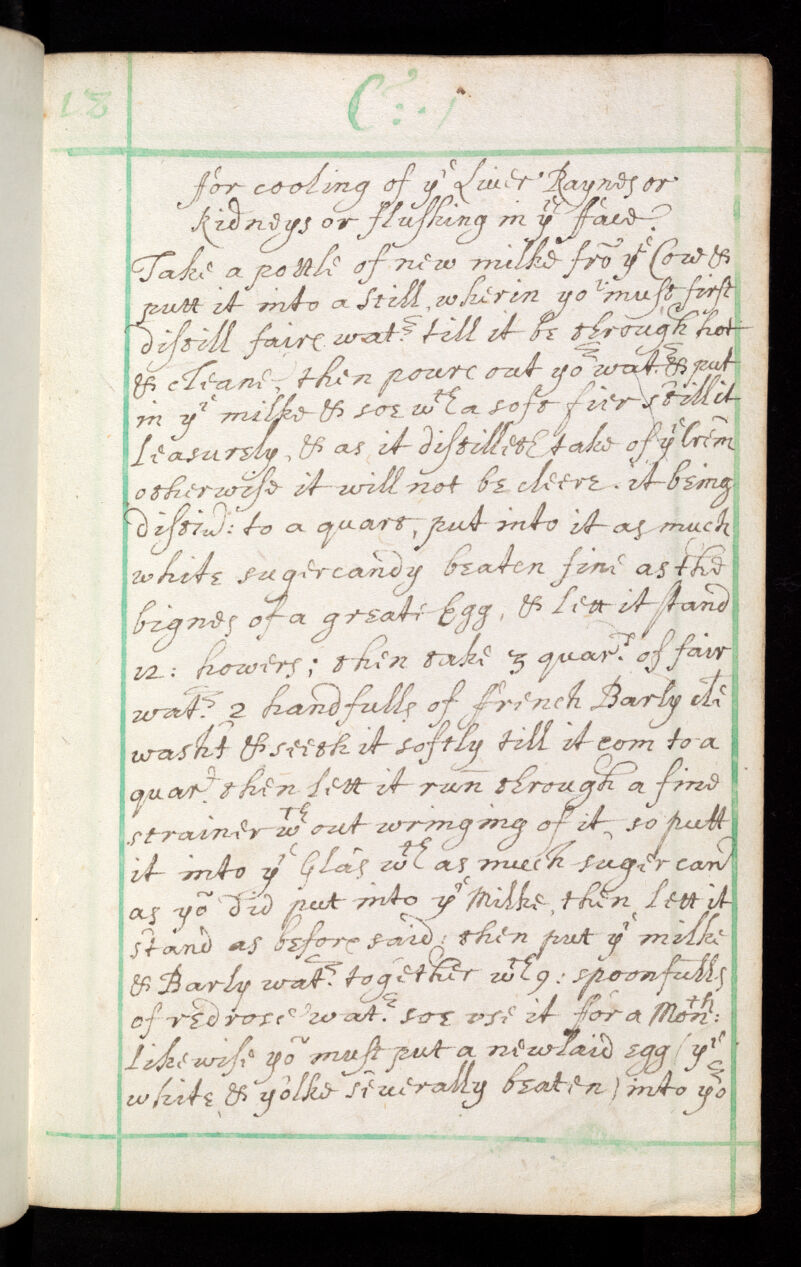 18
C
for cooling of yᵉ Liver Raynes or
Kidneys or flushing in yᵉ face.
Take a pottle of new milke frõ yᵉ Cow &
putt it into a still, wherin yoᵘ must first
distill faire watʳ till it be through hot
& cleane, then poure out yoʳ watʳ & put
in yᵉ milke & soe wᵗʰ a soft fier still it
Leasurely, & as it distilleth take of yᵉ Crẽm
otherwise it will not be cleere. it being
distild: to a quart, put into it as much
white sugercandy beaten fine as the
bignes of a greate Egg, & lett it stand
12: howers; then take 3 quarᵗ of fair
watʳ 2 handfulls of french Barly clẽ
washt & seeth it softly till it com to a
quarᵗ then lett it run through a fine
strainer wᵗʰout wringing of it, so putt
it into yᵉ Glas wᵗʰ as much suger cand
as yoᵘ did put into yᵉ Milke, then lett it
stand as before said: then put yᵉ milke
& Barly watʳ together wᵗʰ 9: spoonfulls
of red rose watʳ. soe vse it for a Monᵗʰ:
Likewise yoᵘ must put a new laid egg (yᵉ
white & yolke severally beaten) into yoʳ